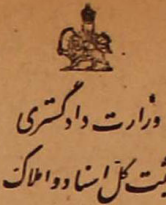 وزارت دادگستری
ثبت کل اسناد و املاک